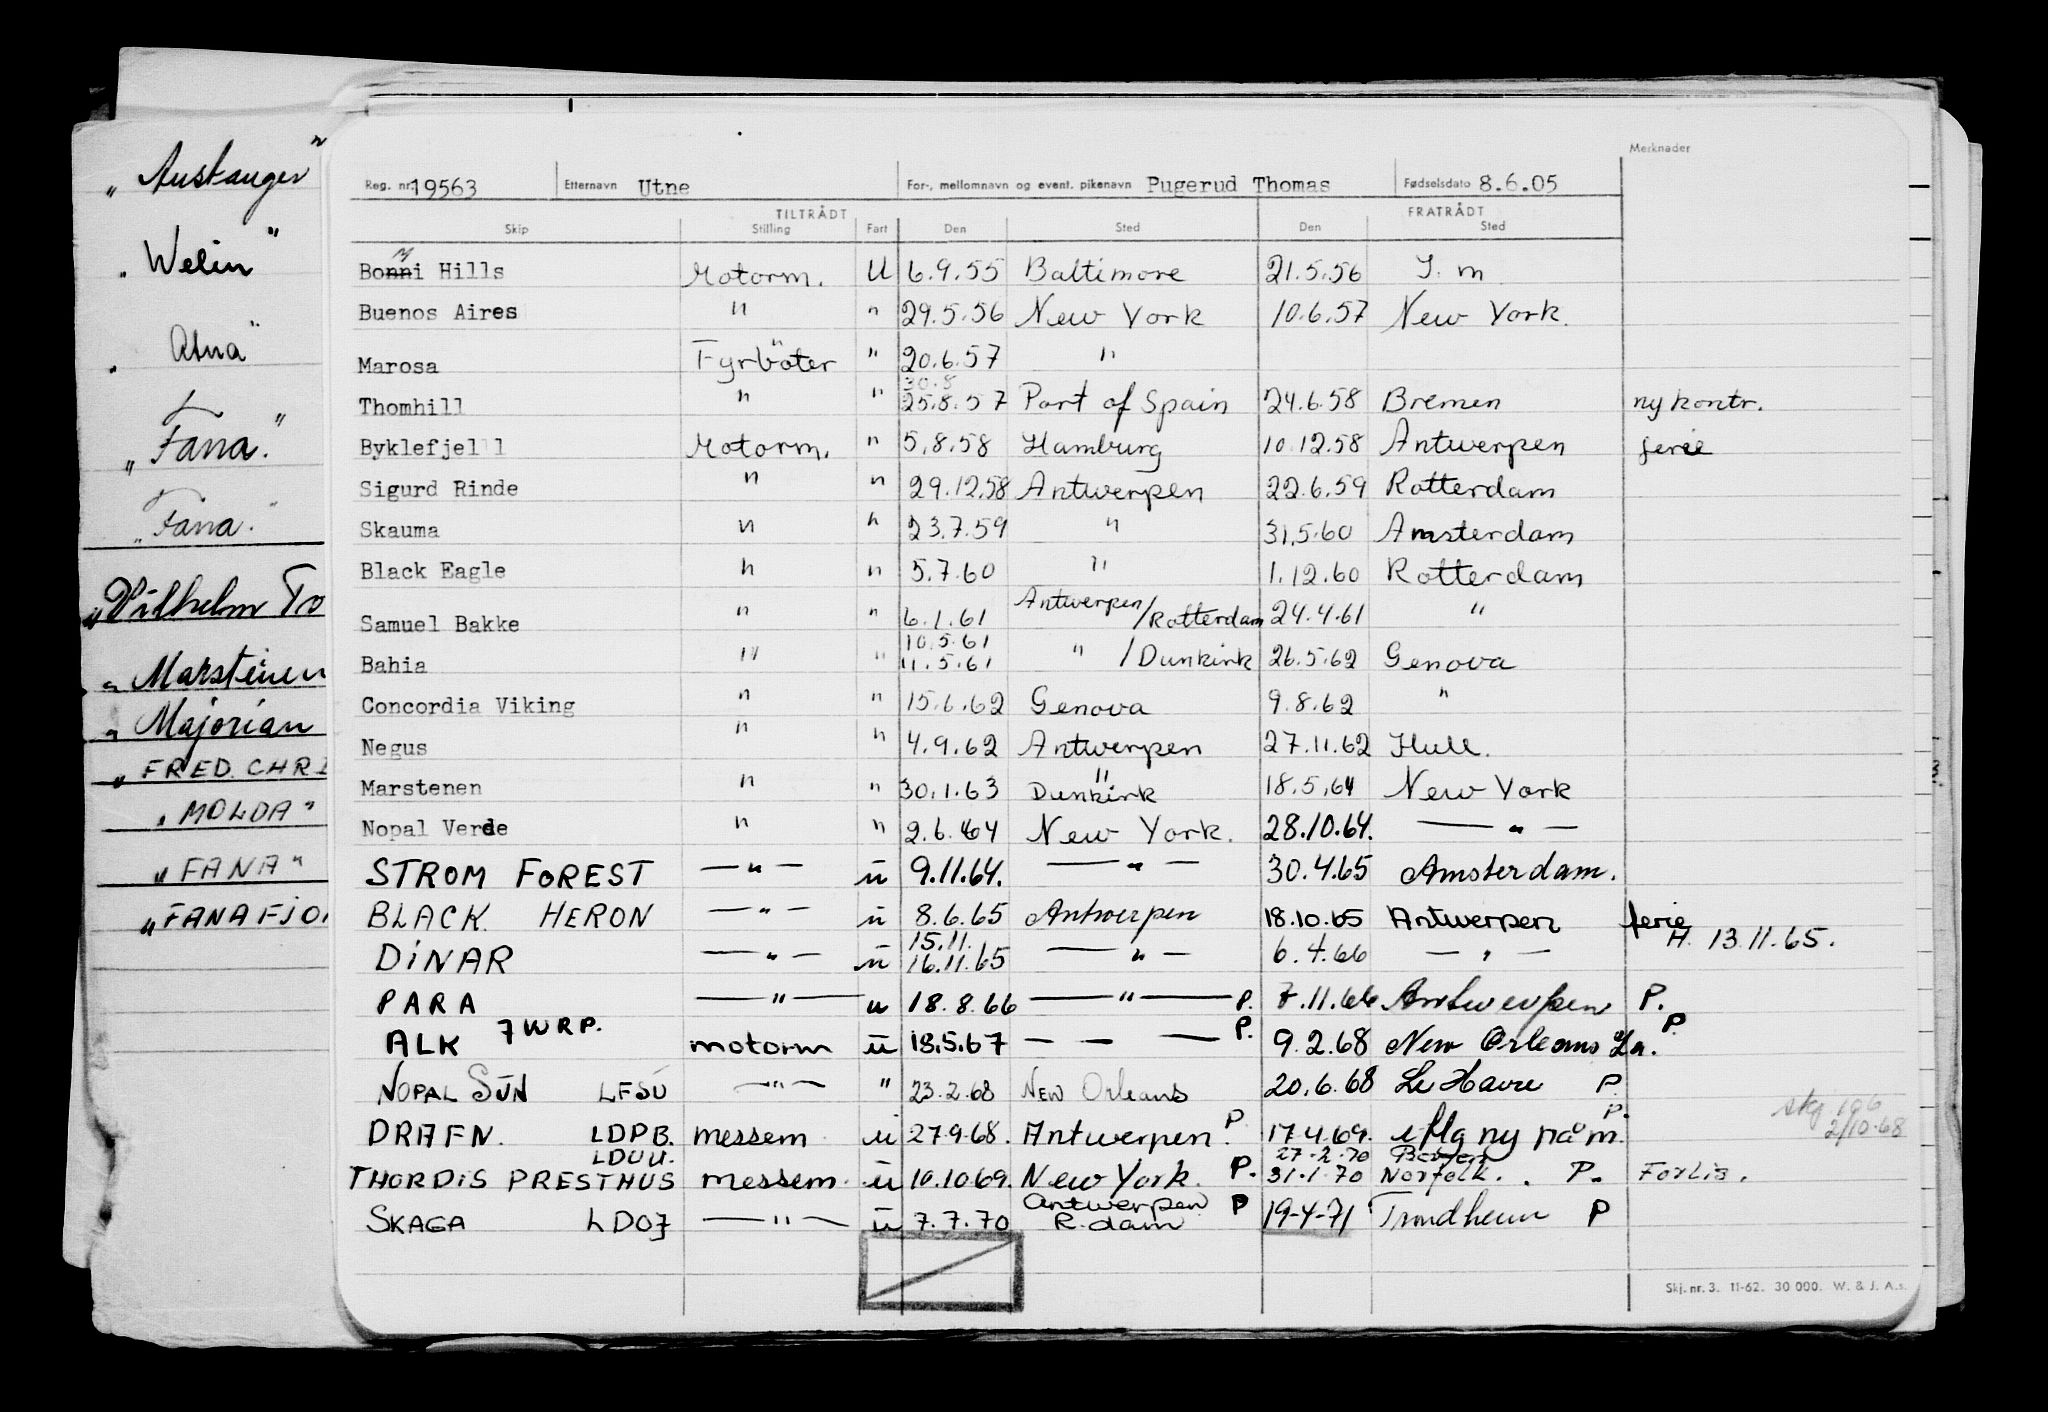 „Austanger"
„Welin"
„Atna"
„Fana."
„Fana."
„Vilhelm To
„Marstenen
„Majorian
„FRED. CHRI
„MOLDA"
„FANA"
„FANAFJO
Merknader
Reg. nr. 19563 Etternavn Utne For-, mellomnavn og event. pikenavn Pugerud Thomas Fødselsdato 8.6.05
TILTRÅDT FRATRÅDT
Skip Stilling Fart Den Sted Den Sted
Bonni Hills Motorm. U 6.9.55 Baltimore 21.5.56 I. m
Buenos Aires " " 29.5.56 New York 10.6.57 New York.
Marosa Fyrbøter " 20.6.57 "
30.8
Thomhill " " 25.8.57 Port of Spain 24.6.58 Bremen ny kontr.
Byklefjell Motorm. " 5.8.58 Hamburg 10.12.58 Antwerpen ferie
Sigurd Rinde " " 29.12.58 Antwerpen 22.6.59 Rotterdam
Skauma " " 23.7.59 " 31.5.60 Amsterdam
Black Eagle " " 5.7.60 " 1.12.60 Rotterdam
Samuel Bakke " " 6.1.61 Antwerpen/Rotterdam 24.4.61 "
10.5.61
Bahia " " 11.5.61 " /Dunkirk 26.5.62 Genova
Concordia Viking " " 15.6.62 Genova 9.8.62 "
Negus " " 4.9.62 Antwerpen 27.11.62 Hull.
Marstenen " " 30.1.63 " Dunkirk 18.5.64 New York
Nopal Verde " " 2.6.64 New York. 28.10.64. — " —
STROM FOREST — " — u 9.11.64. — " — 30.4.65 Amsterdam.
BLACK HERON — " — u 8.6.65 Antwerpen 18.10.65 Antwerpen ferie
15.11. H. 13.11.65.
DINAR — " — u 16.11.65 — " — 6.4.66 — " —
PARA — " — u 18.8.66 — " — P. 7.11.66 Antwerpen P.
ALK 7WRP. motorm u 18.5.67 — — — P. 9.2.68 New Orleans La. P
NOPAL SUN LFSU — " — " 23.2.68 NEW Orleans 20.6.68 Le Havre P
skj. 106
DRAFN. LDPB. messem u 27.9.68. Antwerpen. P 17.4.69. iflg ny på m. P. 2/10-68
LDUU. 27-2-70 Bergen
THORDIS PRESTHUS messem u 10.10.69. New York. P. 31.1.70 Norfolk. . P. Forlis.
Antwerpen
SKAGA LDOJ — " — u 7.7.70 R.dam P 19-4-71 Trondheim P
Skj. nr. 3. 11-62. 30 000. W. & J. A.s.